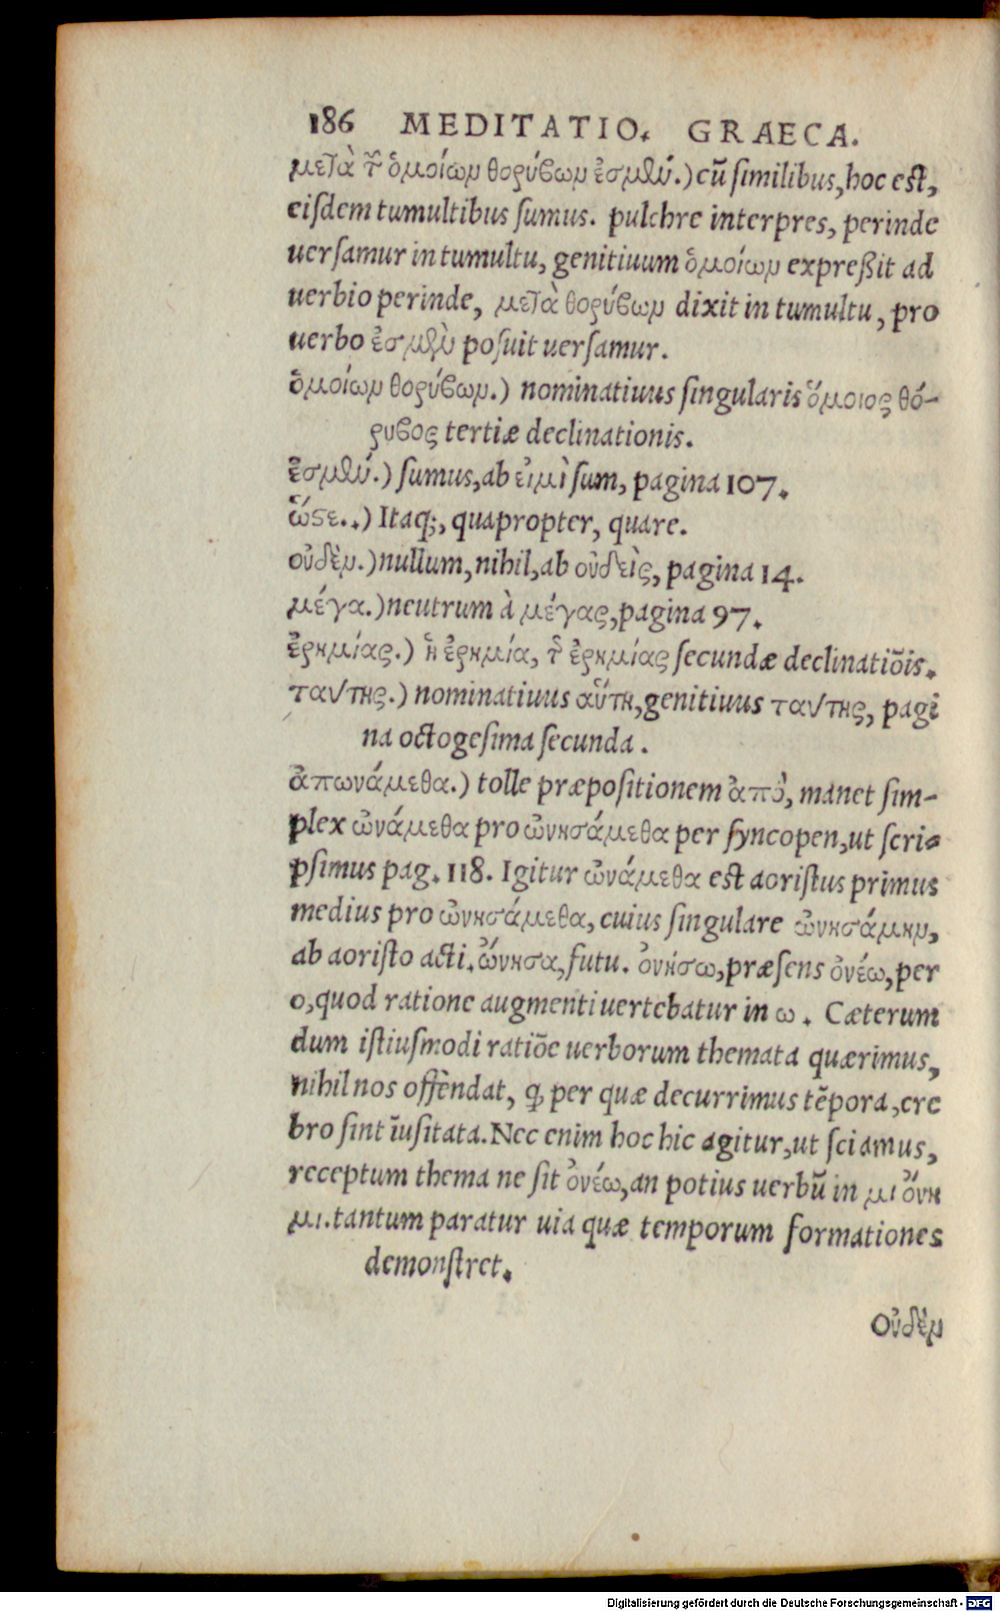 186 MEDITATIO. GRAECA.
μετὰ τῶν ὁμοίων θορύβων ἐσμὲν.) cū similibus, hoc est,
eisdem tumultibus sumus. pulchre interpres, perinde
uersamur in tumultu, genitiuum ὁμοίων expreßit ad
uerbio perinde, μετὰ θορύβων dixit in tumultu, pro
uerbo ἐσμὲν posuit uersamur.
ὁμοίων θορύβων.) nominatiuus singularis ὅμοιος θό-
ρυβος tertiæ declinationis.
ἐσμὲν.) sumus, ab εἰμὶ sum, pagina 107.
ὥστε..) Itaq;, quapropter, quare.
οὐδὲν.) nullum, nihil, ab οὐδεὶς, pagina 14.
μέγα.) neutrum à μέγας, pagina 97.
ἐρημίας.) ἡ ἐρημία, τῆς ἐρημίας secundæ declinatiōis.
ταύτης.) nominatiuus αὕτη, genitiuus ταύτης, pagi
na octogesima secunda.
ἀπωνάμεθα.) tolle præpositionem ἀπὸ, manet sim-
plex ὠνάμεθα pro ὠνησάμεθα per syncopen, ut scri-
psimus pag. 118. Igitur ὠνάμεθα est aoristus primus
medius pro ὠνησάμεθα, cuius singulare ὠνησάμην,
ab aoristo acti. ὤνησα, futu. ὀνήσω, præsens ὀνέω, per
o, quod ratione augmenti uertebatur in ω. Cæterum
dum istiusmodi ratiōe uerborum themata quærimus,
nihil nos offendat, ꝙ per quæ decurrimus tēpora, cre
bro sint īusitata. Nec enim hoc hic agitur, ut sciamus,
receptum thema ne sit ὀνέω, an potius uerbū in μι ὄνη
μι. tantum paratur uia quæ temporum formationes
demonstret.
Οὐδὲν
Digitalisierung gefördert durch die Deutsche Forschungsgemeinschaft - DFG